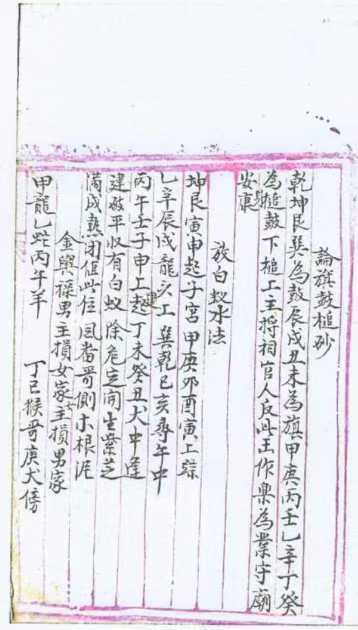 論旗鼓槌砂
乾坤艮巽為鼓辰戌丑未為旗甲庚丙壬乙辛丁癸
為槌鼓下槌上主將相官人反此主作樂為業守廟
安裏
放白蚁水法
坤艮寅申起子宮甲庚卯酉寅上踪
乙辛辰戌龍上巽乾巳亥尋午中
丙午壬子申上起丁未癸丑犬中逢
建破平收有白蚁除危定開生紫芝
滿成熱閉位
金輿祿男主損女家主損男家
甲龍乙蛇丙午羊 丁己猴哥庚犬傍